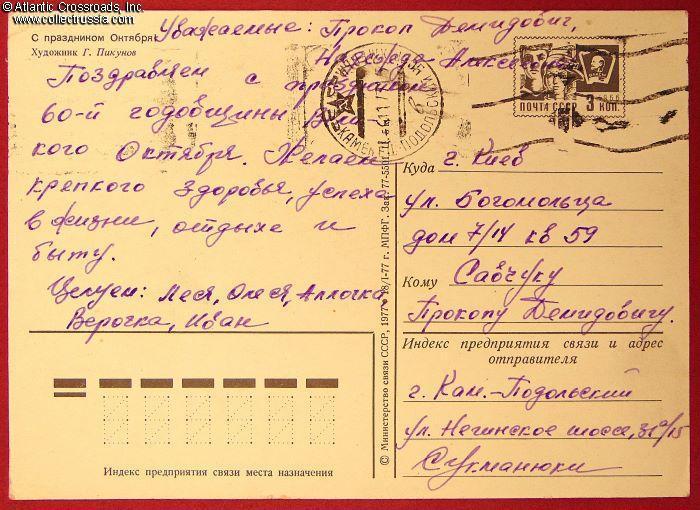 © Atlantic Crossroads, Inc.
www.collectrussia.com
С праздником Октября
Художник Г. Пикунов
Уважаемые: Прокоп Демидович,
Поздравляем с праздником
60-й годовщины Вели
кого Октября. Желаем
крепкого здоровья, успеха
в жизни, отдыхе и
быту.
Целуем: Леся, Олеся, Аллочка,
Верочка, Иван
ПОЧТА СССР 3 КОП.
Куда г. Киев
ул. Богомольца
дом 7/14 кв 59
Кому Савчуку
Прокопу Демидовичу.
Индекс предприятия связи и адрес
отправителя
г. Кам.-Подольский
ул. Негинское шоссе, 31а/15
Сукманюки
Индекс предприятия связи места назначения
© Министерство связи СССР, 1977 18/I-77 г. МПФГ. Зак. 77-55